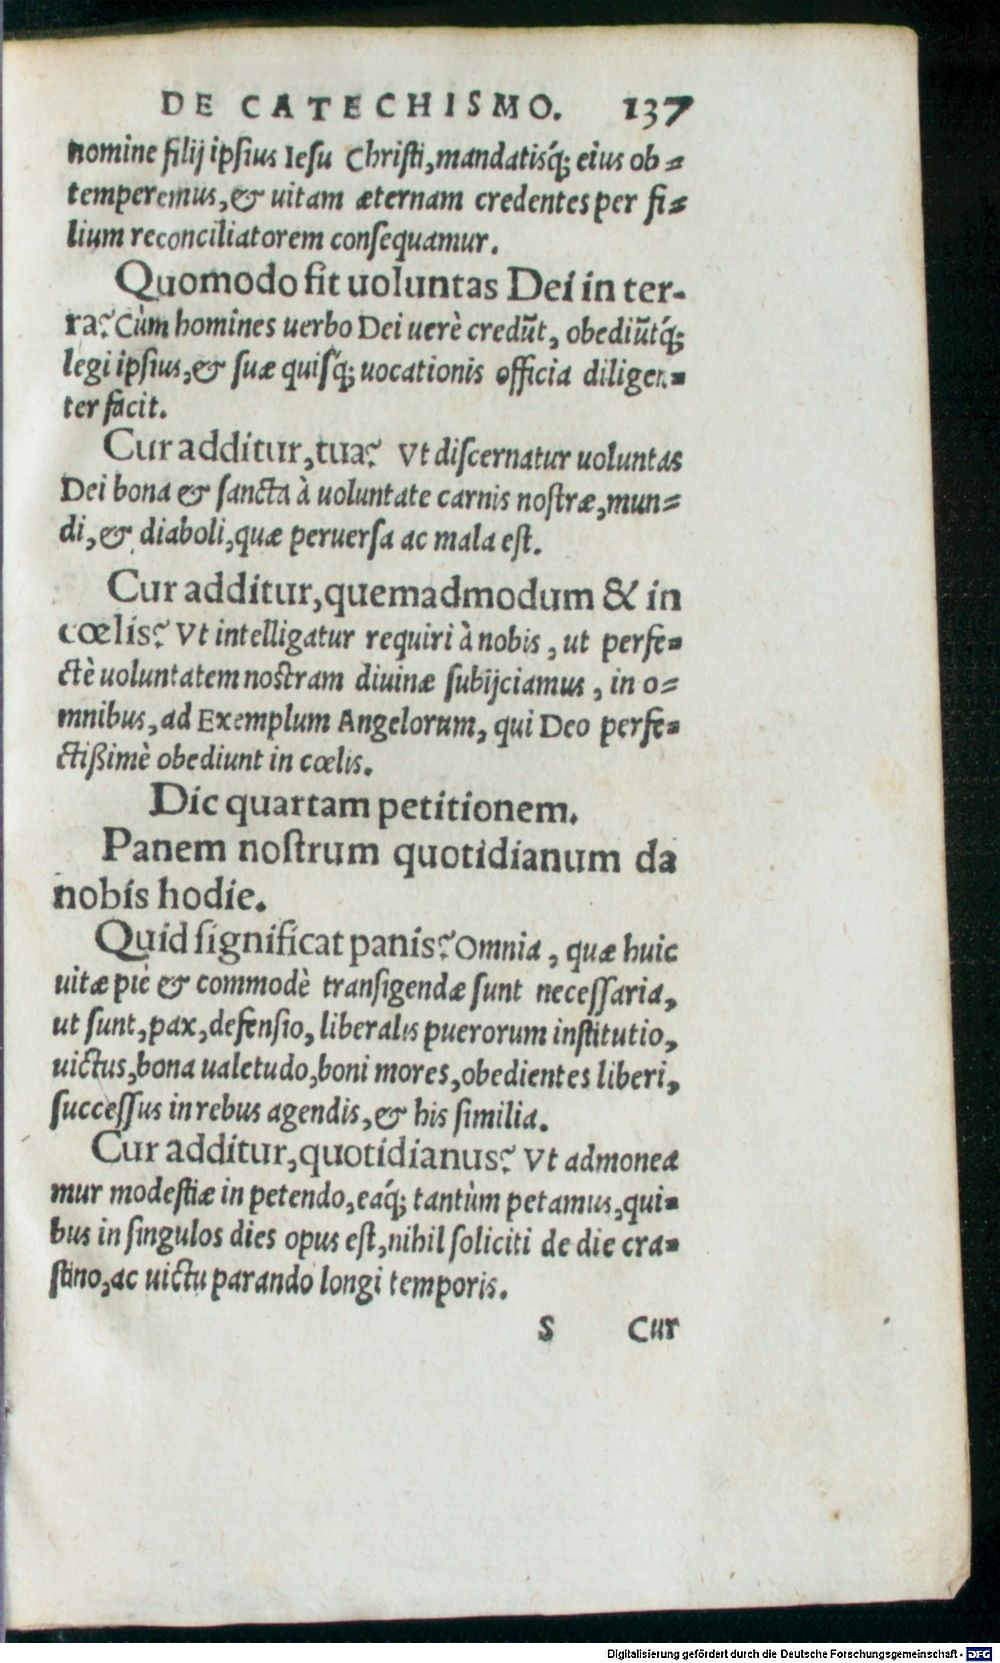 DE CATECHISMO. 137
nomine filij ipsius Iesu Christi, mandatisq́; eius ob=
temperemus, & uitam æternam credentes per fi=
lium reconciliatorem consequamur.
Quomodo fit uoluntas Dei in ter-
ra? Cùm homines uerbo Dei uerè credũt, obediũtq́;
legi ipsius, & suæ quisq́; uocationis officia diligen=
ter facit.
Cur additur, tua? Vt discernatur uoluntas
Dei bona & sancta à uoluntate carnis nostræ, mun=
di, & diaboli, quæ peruersa ac mala est.
Cur additur, quemadmodum & in
cœlis? Vt intelligatur requiri à nobis, ut perfe=
ctè uoluntatem nostram diuinæ subijciamus, in o=
mnibus, ad Exemplum Angelorum, qui Deo perfe=
ctißimè obediunt in cœlis.
Dic quartam petitionem.
Panem nostrum quotidianum da
nobis hodie.
Quid significat panis? Omnia, quæ huic
uitæ piè & commodè transigendæ sunt necessaria,
ut sunt, pax, defensio, liberalis puerorum institutio,
uictus, bona ualetudo, boni mores, obedientes liberi,
successus in rebus agendis, & his similia.
Cur additur, quotidianus? Vt admonea
mur modestiæ in petendo, eaq́; tantùm petamus, qui=
bus in singulos dies opus est, nihil soliciti de die cra=
stino, ac uictu parando longi temporis.
S Cur
Digitalisierung gefördert durch die Deutsche Forschungsgemeinschaft - DFG